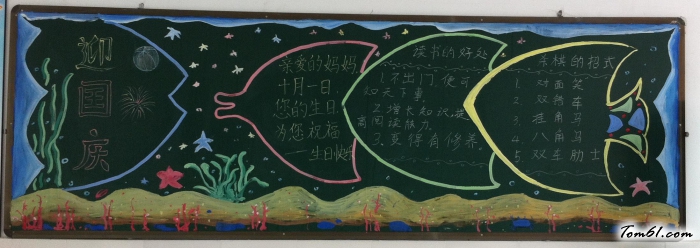 迎
国
庆
亲爱的妈妈,
十月一日
您的生日
为您祝福
生日快乐
读书的好处
1.不出门便可
知天下事.
2.增长知识,提
高阅读能力.
3.变得有修养.
象棋的招式
1. 对面笑
2. 双错车
3. 挂角马
4. 八角马
5. 双车胁士
Tom61.com